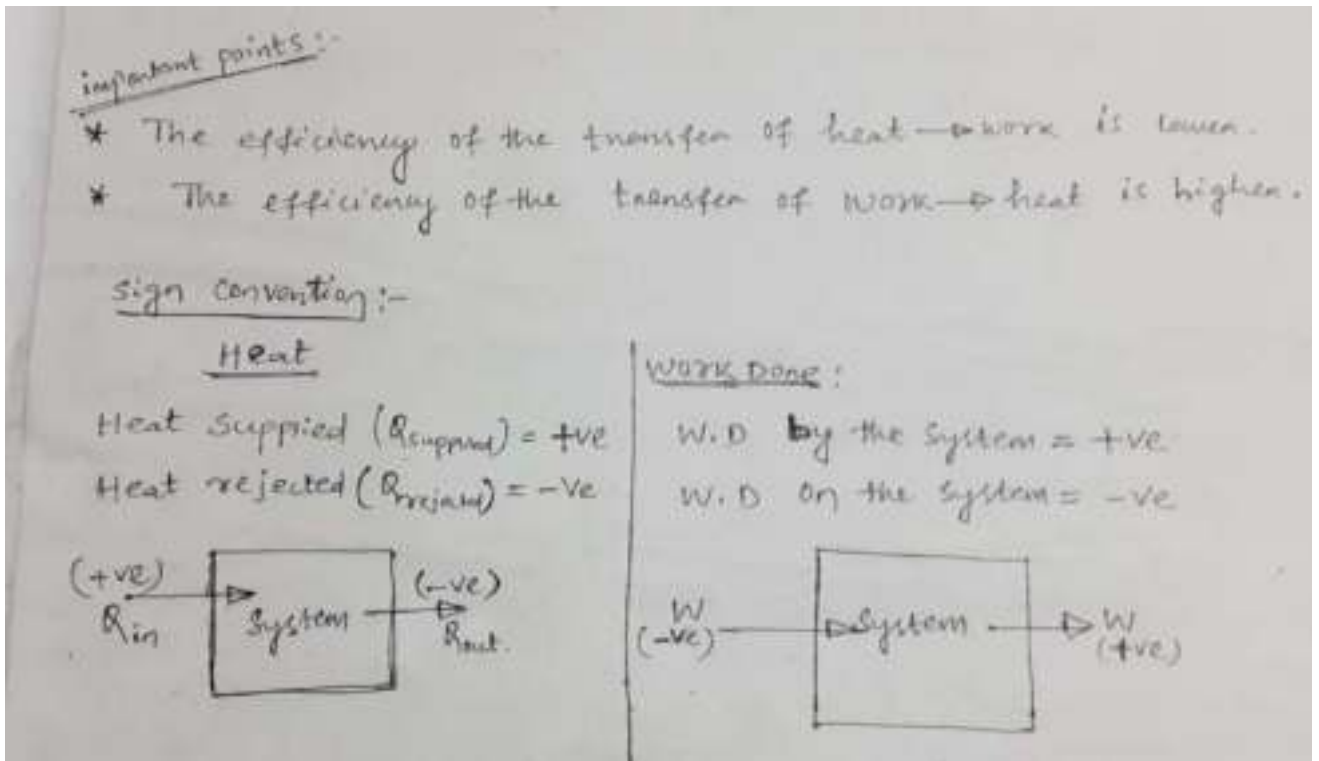 important points :-
* The efficiency of the transfer of heat → work is lower.
* The efficiency of the transfer of work → heat is higher.
sign convention :-
Heat
Heat suppied (Qsupplied) = +ve
Heat rejected (Qrejected) = -ve
(+ve)
Qin
System
(-ve)
Qout.
Work Done :
W.D by the system = +ve
W.D on the system = -ve
W
(-ve)
System
W
(+ve)